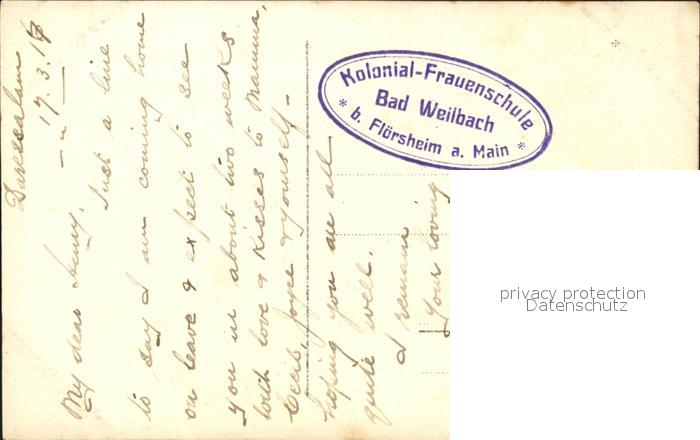 Daressalam
17.3.17
My dear Henry.
Just a line
to say I am coming home
on leave & expect to see
you in about two weeks
with love & kisses to Mamma,
Joyce & yourself -
hoping you are all
quite well.
I remain
Your loving
Kolonial-Frauenschule
Bad Weilbach
* b. Flörsheim a. Main *
privacy protection
Datenschutz